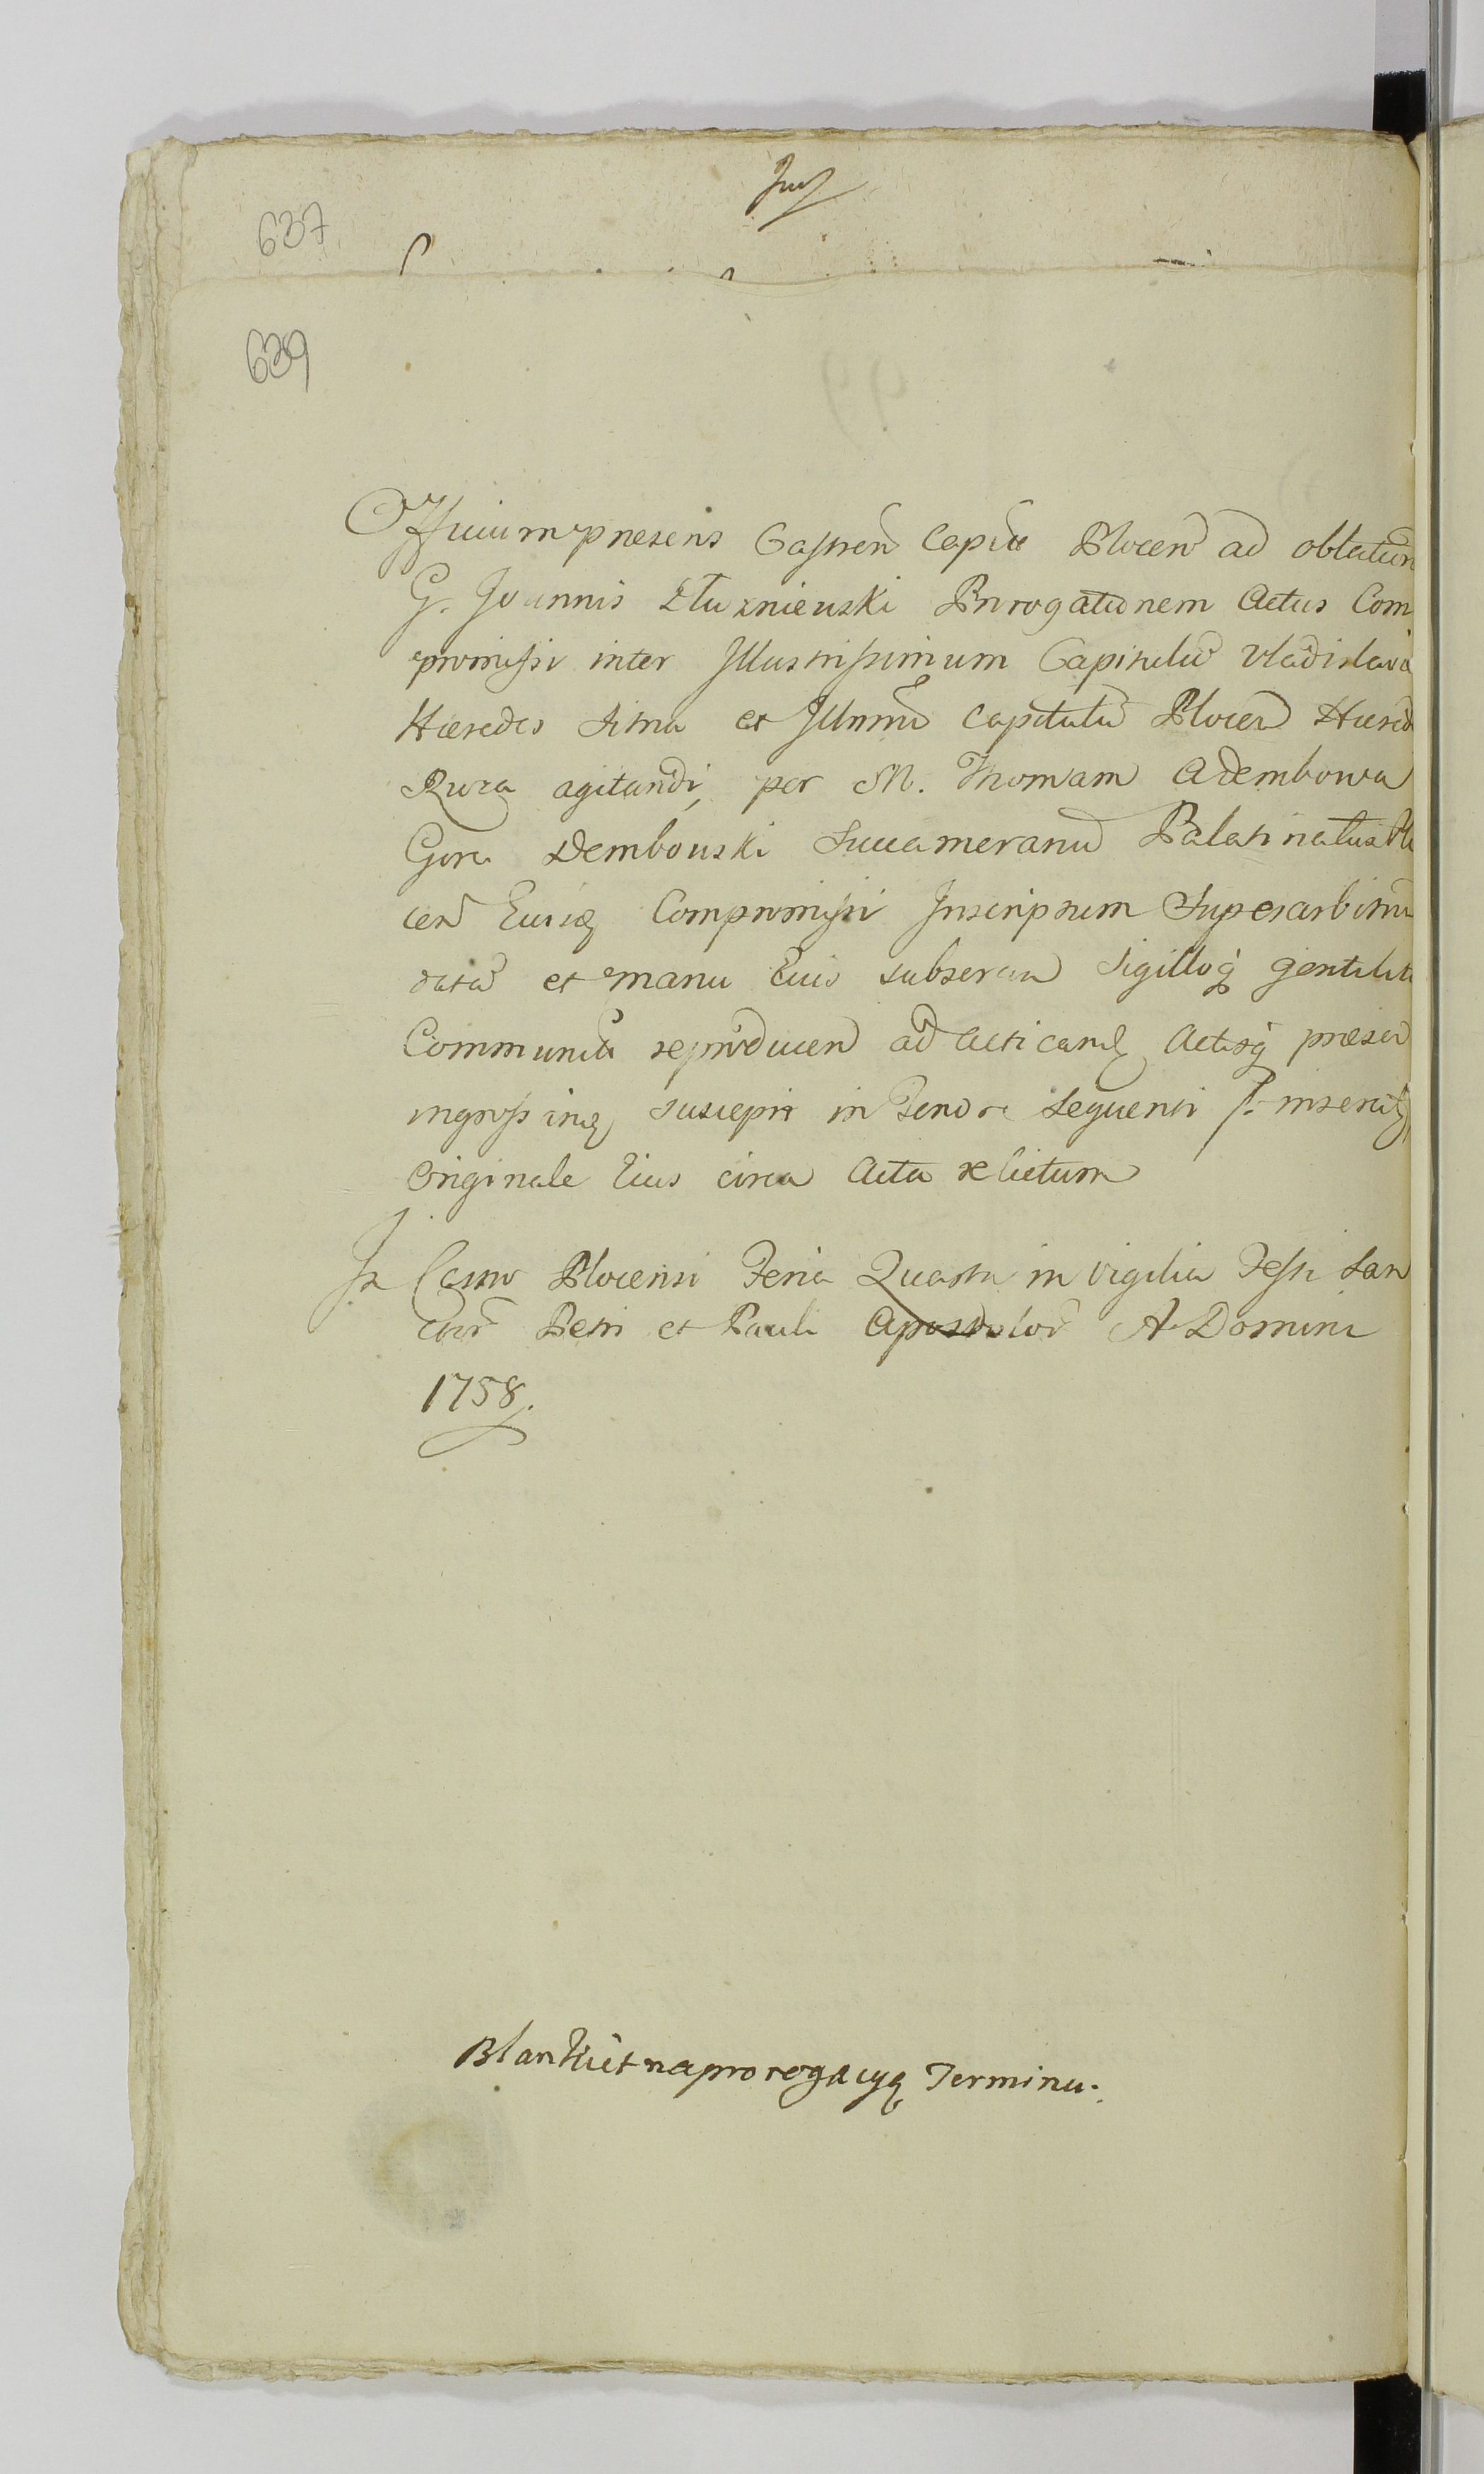 637
639
Officium præsens Castren Capitle Plocen ad oblatam
G. Joannis Dłuzniewski Prorogationem Actus Com
promissi inter Illustrissimum Capitulū Vladislavi
Hæredes et Illmm̄ Capitulū Plocen Hæred
agitandi, per M. Thomam a Dembowa
Gora Dembowski Succamerarū Palatinatus Plo
cen Eiusq Compromissi Inscriptum Superarbitru
datā et manu Eius subscr Sigilloq gentiliti
Communitā reproducen ad acticandȩ Actisq præsen
ingrossandȩ suscepit in Tenore Sequenti inserit
Originale Eius circa Acta relictum
In Castro Plocensi Feria Quarta in Vigilia Festi San
ctor Petri et Pauli Apostolor A. Domini
1758.
Blankiet na prorogacyą Terminu.